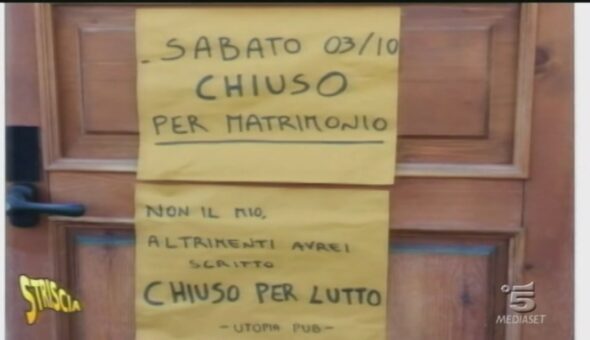 SABATO 03/10
CHIUSO
PER MATRIMONIO
NON IL MIO,
ALTRIMENTI AVREI
SCRITTO
CHIUSO PER LUTTO
- UTOPIA PUB -
STRISCIA
5
MEDIASET